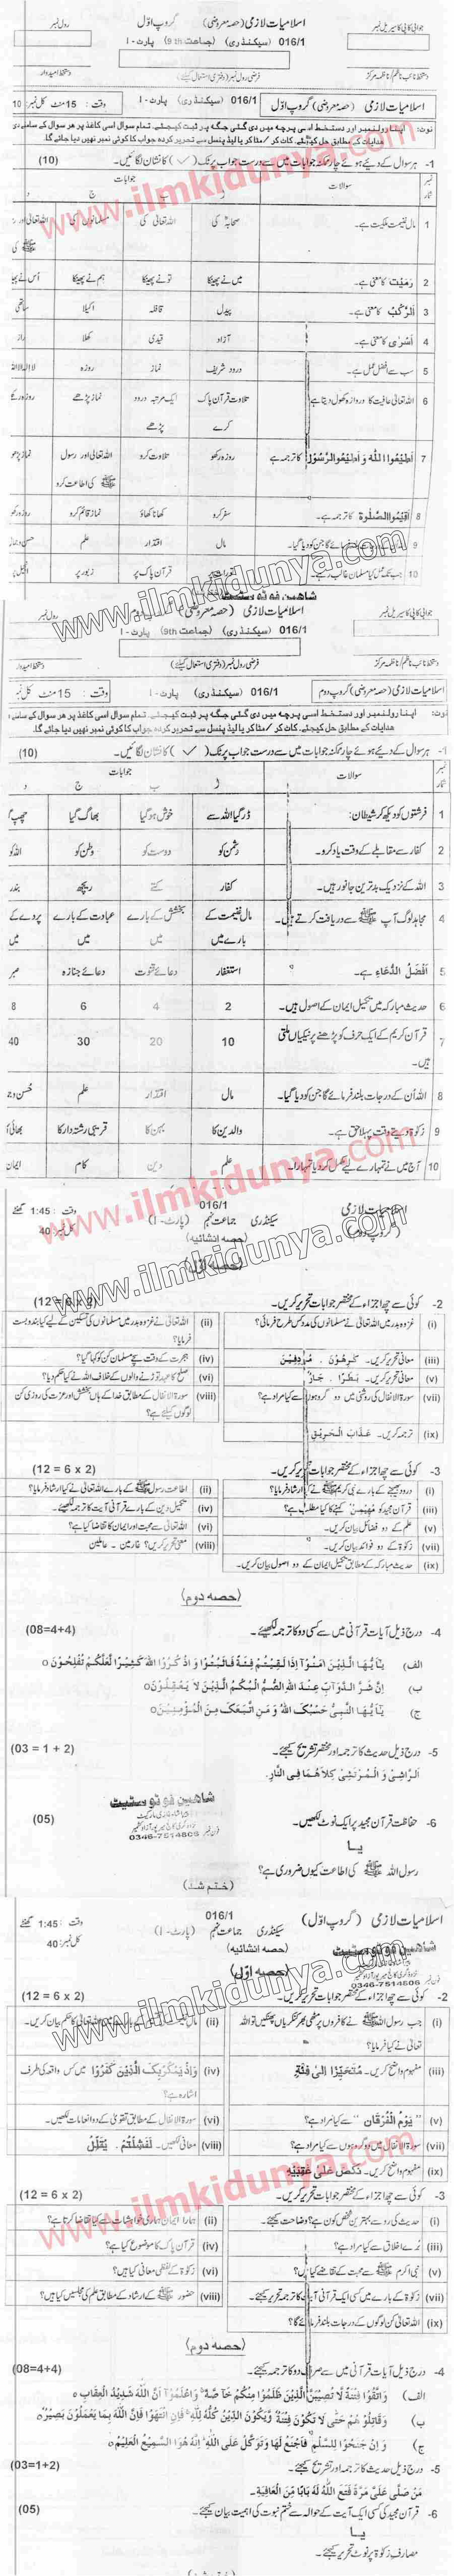 جوابی کاپی کا سیریل نمبر
اسلامیات لازمی (حصہ معروضی) گروپ اوّل
رول نمبر
016/1 (سیکنڈری) (جماعت 9th) پارٹ - I
دستخط نائب ناظم/ناظمہ مرکز
فرضی رول نمبر (دفتری استعمال کیلئے)
دستخط امیدوار
اسلامیات لازمی (حصہ معروضی) گروپ اوّل 016/1 (سیکنڈری) پارٹ - I وقت : 15 منٹ کل نمبر 10
نوٹ: اپنا رولنمبر اور دستخط اسی پرچہ میں دی گئی جگہ پر ثبت کیجئے۔ تمام سوال اسی کاغذ پر ہر سوال کے سامنے دی
ہدایات کے مطابق حل کیجئے۔ کاٹ کر / مٹا کر یا لیڈ پنسل سے تحریر کردہ جواب کا کوئی نمبر نہیں دیا جائے گا۔
1- ہر سوال کے دیئے ہوئے چار ممکنہ جوابات میں سے درست جواب پر ٹک (✓) کا نشان لگائیں۔ (10)
نمبر شمار سوالات جوابات
ب ج د
1 مال غنیمت ملکیت ہے۔ صحابہؓ کی اللہ تعالیٰ کی مسلمانوں کی اللہ تعالیٰ اور
ﷺ کی
2 رَمَيْتَ کا معنی ہے۔ میں نے پھینکا تو نے پھینکا ہم نے پھینکا اُس نے
3 اَلرَّكْبُ کا معنی ہے۔ پیدل قافلہ اکیلا ساتھی
4 اَسْرٰی کا معنی ہے۔ آزاد قیدی کھلا راز
5 سب سے افضل عمل ہے۔ درود شریف نماز روزہ لا الہ الا اللہ
6 اللہ تعالیٰ عافیت کا دروازہ کھول دیتا ہے تلاوت قرآن پاک کرے ایک مرتبہ درود پڑھے نماز پڑھے روزہ
7 اَطِيْعُوا اللّٰهَ وَاَطِيْعُوا الرَّسُوْلَ کا ترجمہ ہے روزہ رکھو تلاوت کرو اللہ تعالیٰ اور رسول ﷺ کی اطاعت کرو نماز پڑھو
8 اَقِيْمُوا الصَّلٰوةَ کا ترجمہ ہے۔ سفر کرو کھانا کھاؤ نماز قائم کرو روزہ رکھو
9 جن کو دیا گیا۔ مال اقتدار علم
10 مسلمان غالب رہے۔ قرآن پاک پر زبور پر
www.ilmkidunya.com
شاہین فوٹو سٹیٹ
جوابی کاپی کا سیریل نمبر
رول نمبر
016/1 (سیکنڈری) (جماعت 9th) پارٹ - I
دستخط نائب ناظم/ناظمہ مرکز
فرضی رول نمبر (دفتری استعمال کیلئے)
دستخط امیدوار
اسلامیات لازمی (حصہ معروضی) گروپ دوم 016/1 (سیکنڈری) پارٹ - I وقت : 15 منٹ کل نمبر
نوٹ: اپنا رولنمبر اور دستخط اسی پرچہ میں دی گئی جگہ پر ثبت کیجئے۔ تمام سوال اسی کاغذ پر ہر سوال کے سامنے
ہدایات کے مطابق حل کیجئے۔ کاٹ کر / مٹا کر یا لیڈ پنسل سے تحریر کردہ جواب کا کوئی نمبر نہیں دیا جائے گا۔
1- ہر سوال کے دیئے ہوئے چار ممکنہ جوابات میں سے درست جواب پر ٹک (✓) کا نشان لگائیں۔ (10)
نمبر شمار سوالات جوابات
ب ج د
1 فرشتوں کو دیکھ کر شیطان: ڈر گیا اللہ سے خوش ہو گیا بھاگ گیا چھپ
2 کفار سے مقابلے کے وقت یاد کرو۔ دشمن کو دوست کو وطن کو اللہ کو
3 اللہ کے نزدیک بدترین جانور ہیں۔ کفار کتے ریچھ بندر
4 مجاہد لوگ آپ ﷺ سے دریافت کرتے ہیں۔ مال غنیمت کے بارے میں بخشش کے بارے میں عبادت کے بارے میں پردے کے میں
5 اَفْضَلُ الدُّعَاءِ ہے۔ استغفار دعائے قنوت دعائے جنازہ صبر
6 حدیث مبارکہ میں تکمیل ایمان کے اصول ہیں۔ 2 4 6 8
7 قرآن کریم کے ایک حرف کو پڑھنے پر نیکیاں ملتی ہیں۔ 10 20 30 40
8 اللہ اُن کے درجات بلند فرمائے گا جن کو دیا گیا۔ مال اقتدار علم
9 زکوٰۃ دیتے وقت پہلا حق ہے۔ والدین کا بہن کا قریبی رشتہ دار کا بھائی
10 آج میں نے تمہارے لیے مکمل کر دیا تمہارا۔ علم دین کام ایمان
www.ilmkidunya.com
اسلامیات لازمی 016/1 وقت : 1:45 گھنٹے
(گروپ دوم) سیکنڈری جماعت نہم (پارٹ - I) کل نمبر: 40
(حصہ انشائیہ)
(حصہ اوّل)
2- کوئی سے چھ اجزاء کے مختصر جوابات تحریر کریں۔ (12 = 6 x 2)
(i) غزوہ بدر میں اللہ تعالیٰ نے مسلمانوں کی مدد کس طرح فرمائی؟
(ii) اللہ تعالیٰ نے غزوہ بدر میں مسلمانوں کی تسکین کے لیے کیا بندوبست فرمایا؟
(iii) معانی تحریر کریں۔ كٰرِهُوْنَ ، مُرْدِفِيْنَ
(iv) ہجرت کے وقت سچے مسلمان کن کو کہا گیا؟
(v) معانی تحریر کریں۔ بَطَرًا ، جَارٌ
(vi) صلح کا عہد توڑنے والوں کے خلاف اللہ نے کیا حکم دیا؟
(vii) سورۃ الانفال کی روشنی میں دو گروہوں سے کیا مراد ہے؟
(viii) سورۃ الانفال کے مطابق خدا کے ہاں بخشش اور عزت کی روزی کن لوگوں کیلئے ہے؟
(ix) ترجمہ کریں۔ عَذَابَ الْحَرِيْقِ
3- کوئی سے چھ اجزاء کے مختصر جوابات تحریر کریں۔ (12 = 6 x 2)
(i) درود بھیجنے کے بارے نبی کریم ﷺ نے کیا ارشاد فرمایا؟
(ii) اطاعت رسول ﷺ کے بارے اللہ تعالیٰ نے کیا ارشاد فرمایا؟
(iii) قرآن مجید کو مُهَيْمِنْ کہنے کا کیا مطلب ہے؟
(iv) تکمیل دین کے بارے قرآنی آیت کا ترجمہ لکھیے۔
(v) علم کے دو فضائل بیان کریں۔
(vi) اللہ تعالیٰ سے محبت اور ایمان کا تقاضا کیا ہے؟
(vii) زکوٰۃ کے دو فوائد بیان کریں۔
(viii) معنی تحریر کریں؟ غارمین ۔ عاملین
(ix) حدیث مبارکہ کے مطابق تکمیل ایمان کے دو اصول بیان کریں۔
(حصہ دوم)
4- درج ذیل آیات قرآنی میں سے کسی دو کا ترجمہ لکھئیے۔ (08=4+4)
الف) يٰاَيُّهَا الَّذِيْنَ اٰمَنُوْا اِذَا لَقِيْتُمْ فِئَةً فَاثْبُتُوْا وَاذْكُرُوا اللّٰهَ كَثِيْرًا لَّعَلَّكُمْ تُفْلِحُوْنَ ○
ب) اِنَّ شَرَّ الدَّوَآبِّ عِنْدَ اللّٰهِ الصُّمُّ الْبُكْمُ الَّذِيْنَ لَا يَعْقِلُوْنَ ○
ج) يٰاَيُّهَا النَّبِيُّ حَسْبُكَ اللّٰهُ وَمَنِ اتَّبَعَكَ مِنَ الْمُؤْمِنِيْنَ ○
5- درج ذیل حدیث کا ترجمہ اور مختصر تشریح کیجئے۔ (03 = 1 + 2)
اَلرَّاشِيْ وَالْمُرْتَشِيْ كِلَاهُمَا فِي النَّارِ.
شاہین فوٹو سٹیٹ
0346-7514606
6- حفاظت قرآن مجید پر ایک نوٹ لکھیں۔ (05)
یا
رسول اللہ ﷺ کی اطاعت کیوں ضروری ہے؟
(ختم شد)
اسلامیات لازمی (گروپ اوّل) 016/1 وقت : 1:45 گھنٹے
سیکنڈری جماعت نہم (پارٹ - I) کل نمبر: 40
(حصہ انشائیہ)
شاہین فوٹو سٹیٹ
0346-7514606
(حصہ اوّل)
2- کوئی سے چھ اجزاء کے مختصر جوابات تحریر کریں۔ (12 = 6 x 2)
(i) جب رسول اللہ ﷺ نے کافروں پر مٹھی بھر کنکریاں پھینکیں تو اللہ تعالیٰ نے کیا فرمایا؟
(ii) مال کا حکم بیان کریں۔
(iii) مفہوم واضح کریں۔ مُتَحَيِّزًا اِلٰى فِئَةٍ
(iv) وَاِذْ يَمْكُرُ بِكَ الَّذِيْنَ كَفَرُوْا میں کس واقعہ کی طرف اشارہ ہے؟
(v) "يَوْمَ الْفُرْقَانِ" سے کیا مراد ہے؟
(vi) سورۃ الانفال کے مطابق تقویٰ کے دو انعامات لکھیں۔
(vii) سورۃ الانفال میں دو گروہوں سے کیا مراد ہے؟
(viii) معانی لکھیں۔ لَفَشِلْتُمْ ، يُقَلِّلُ
(ix) مفہوم واضح کریں۔ نَكَصَ عَلٰى عَقِبَيْهِ
3- کوئی سے چھ اجزاء کے مختصر جوابات تحریر کریں۔ (12 = 6 x 2)
(i) حدیث کی رو سے بہترین شخص کون ہے؟ وضاحت کیجئے۔
(ii) ہمارا ایمان ہماری خواہشات سے کیا تقاضا کرتا ہے؟
(iii) بُرے اخلاق سے کیا مراد ہے؟
(iv) قرآن پاک کا موضوع کیا ہے؟
(v) نبی اکرم ﷺ سے محبت کے تقاضے کیا ہیں؟
(vi) زکوٰۃ کے لفظی معانی کیا ہیں؟
(vii) زکوٰۃ کے بارے میں کسی ایک قرآنی آیت کا ترجمہ تحریر کیجئے۔
(viii) حضور ﷺ کے ارشاد کے مطابق علم کی مجلسیں کیا ہیں؟
(ix) اللہ تعالیٰ کن لوگوں کے درجات بلند فرمائے گا؟
(حصہ دوم)
4- درج ذیل آیات قرآنی میں سے صرف دو کا ترجمہ کیجئے۔ (08=4+4)
الف) وَاتَّقُوْا فِتْنَةً لَّا تُصِيْبَنَّ الَّذِيْنَ ظَلَمُوْا مِنْكُمْ خَآصَّةً وَاعْلَمُوْٓا اَنَّ اللّٰهَ شَدِيْدُ الْعِقَابِ ○
ب) وَقَاتِلُوْهُمْ حَتّٰى لَا تَكُوْنَ فِتْنَةٌ وَّيَكُوْنَ الدِّيْنُ كُلُّهٗ لِلّٰهِ فَاِنِ انْتَهَوْا فَاِنَّ اللّٰهَ بِمَا يَعْمَلُوْنَ بَصِيْرٌ ○
ج) وَاِنْ جَنَحُوْا لِلسَّلْمِ فَاجْنَحْ لَهَا وَتَوَكَّلْ عَلَى اللّٰهِ اِنَّهٗ هُوَ السَّمِيْعُ الْعَلِيْمُ ○
5- درج ذیل حدیث کا ترجمہ اور تشریح کیجئے۔ (03=1+2)
مَنْ صَلّٰى عَلَيَّ مَرَّةً فَتَحَ اللّٰهُ لَهٗ بَابًا مِّنَ الْعَافِيَةِ.
6- قرآن مجید کی کسی ایک آیت کے حوالہ سے ختم نبوت کی اہمیت بیان کیجئے۔ (05)
یا
مصارف زکوٰۃ پر نوٹ تحریر کیجئے۔